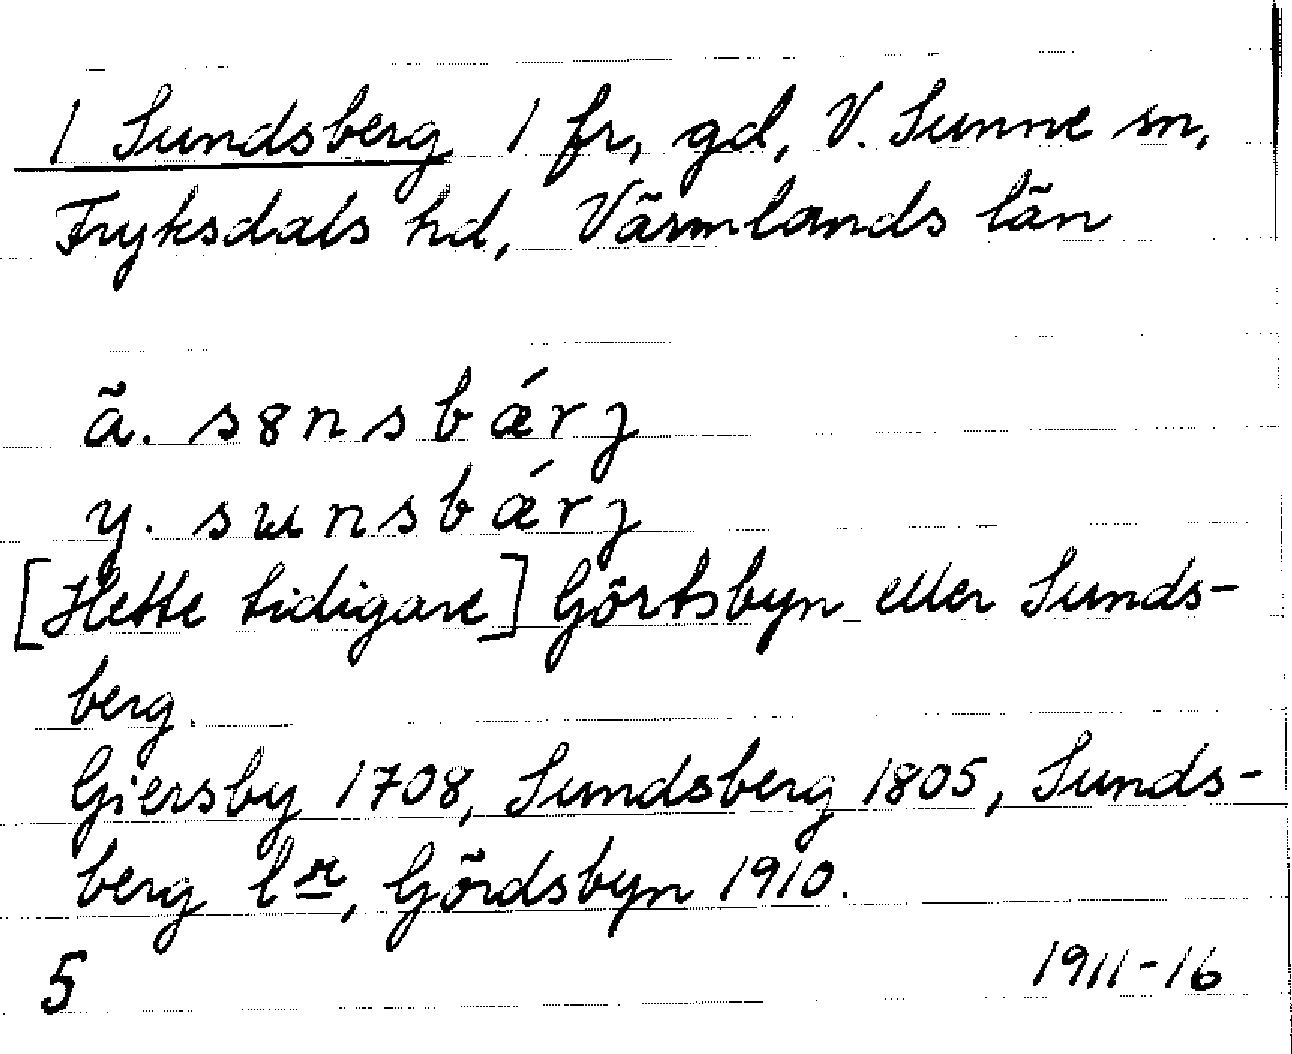 1 Sundsberg 1 fr, gd, V. Sunne sn,
Fryksdals hd, Värmlands län
ä. s8nsbǽrȷ
y. sɯnsbǽrȷ
[Hette tidigare] Görtsbyn eller Sunds-
berg.
Giersby 1708, Sundsberg 1805, Sunds-
berg l. Gördsbyn 1910.
5 1911-16